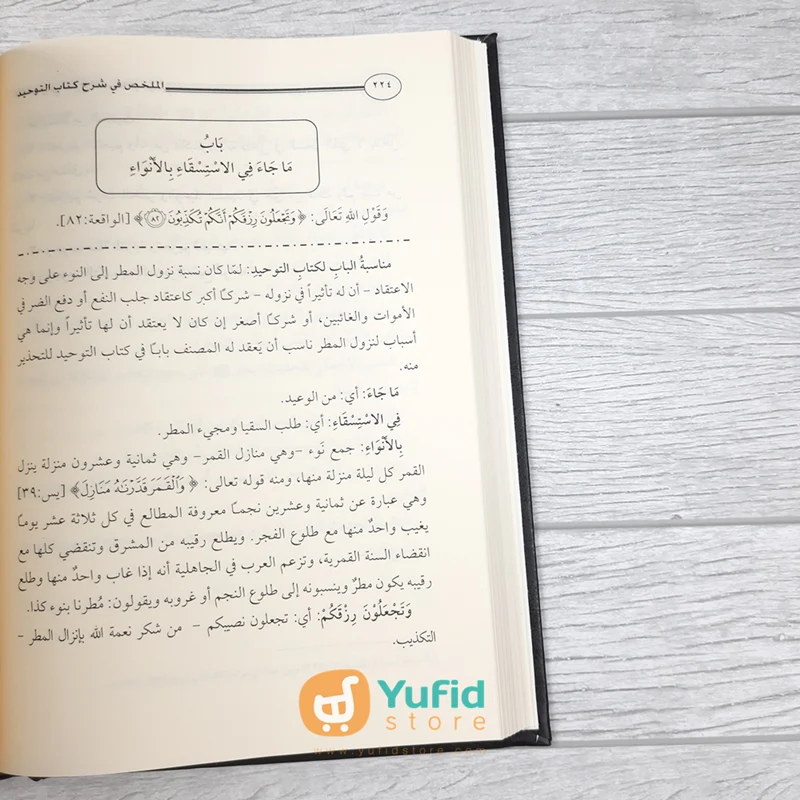 ٢٢٤
الملخص في شرح كتاب التوحيد
بَابُ
مَا جَاءَ فِي الاسْتِسْقَاءِ بِالأَنْوَاءِ
وَقَوْلِ اللهِ تَعَالَى: ﴿ وَتَجْعَلُونَ رِزْقَكُمْ أَنَّكُمْ تُكَذِّبُونَ ٨٢ ﴾ [الواقعة:٨٢].
مناسبةُ البابِ لكتابِ التوحيدِ: لمّا كان نسبة نزول المطر إلى النوء على وجه
الاعتقاد – أن له تأثيراً في نزوله – شركـًا أكبر كاعتقاد جلب النفع أو دفع الضر في
الأموات والغائبين، أو شركـًا أصغر إن كان لا يعتقد أن لها تأثيراً وإنما هي
أسباب لنزول المطر ناسب أن يَعقد له المصنف بابـًا في كتاب التوحيد للتحذير
منه.
مَا جَاءَ: أي: من الوعيد.
فِي الاسْتِسْقَاءِ: أي: طلب السقيا ومجيء المطر.
بِالأَنْوَاءِ: جمع نَوء –وهي منازل القمر– وهي ثمانية وعشرون منزلة ينزل
القمر كل ليلة منزلة منها، ومنه قوله تعالى: ﴿ وَٱلْقَمَرَ قَدَّرْنَٰهُ مَنَازِلَ ﴾ [يس:٣٩]
وهي عبارة عن ثمانية وعشرين نجمـًا معروفة المطالع في كل ثلاثة عشر يومـًا
يغيب واحدٌ منها مع طلوع الفجر. ويطلع رقيبه من المشرق وتنقضي كلها مع
انقضاء السنة القمرية، وتزعم العرب في الجاهلية أنه إذا غاب واحدٌ منها وطلع
رقيبه يكون مطرٌ وينسبونه إلى طلوع النجم أو غروبه ويقولون: مُطرنا بنوء كذا.
وَتَجْعَلُوْنَ رِزْقَكُمْ: أي: تجعلون نصيبكم – من شكر نعمة الله بإنزال المطر –
التكذيب.
Yufid
store
www.yufidstore.com